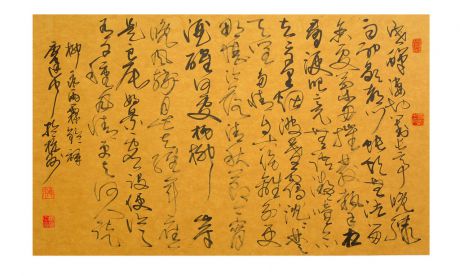 寒蝉凄切对长亭晚骤
雨初歇都门帐饮无绪留
恋处兰舟催发执手相
看泪眼竟无语凝噎念
去去千里烟波暮霭沉沉楚
天阔多情自古伤离别更
那堪冷落清秋节今宵
酒醒何处杨柳岸
晓风残月此去经年应
是良辰好景虚设便纵
有千种风情更与何人说
柳永雨霖铃词